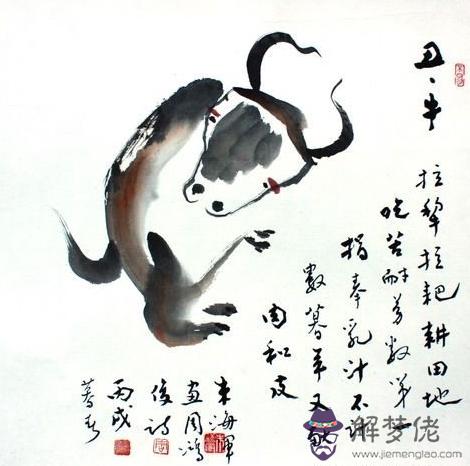 丑、牛
拉犁拉耙耕田地
吃苦耐劳数第一
捐奉乳汁不计
数暮年又献
肉和皮
朱海
画周鸿
俊诗
丙戌
暮春
解梦佬
www.jiemenglao.com